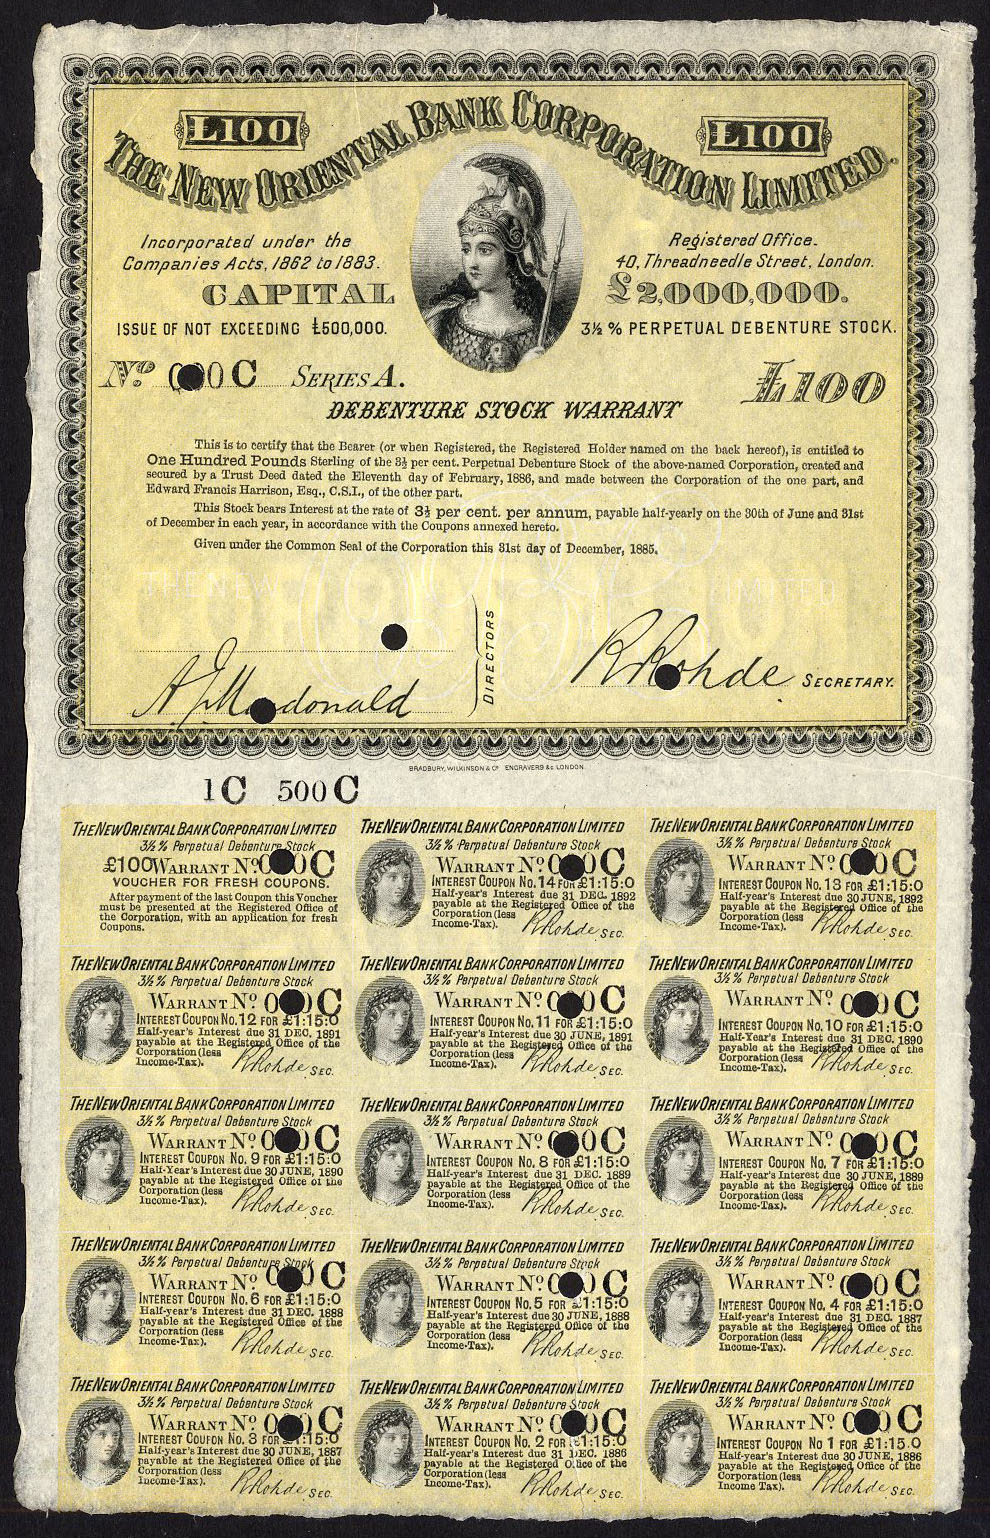 £100
£100
THE NEW ORIENTAL BANK CORPORATION LIMITED.
Incorporated under the
Companies Acts, 1862 to 1883.
Registered Office.
40, Threadneedle Street, London.
CAPITAL
£2,000,000.
ISSUE OF NOT EXCEEDING £500,000.
3½ % PERPETUAL DEBENTURE STOCK.
No. 000 C SERIES A.
£100
DEBENTURE STOCK WARRANT
This is to certify that the Bearer (or when Registered, the Registered Holder named on the back hereof), is entitled to
One Hundred Pounds Sterling of the 3½ per cent. Perpetual Debenture Stock of the above-named Corporation, created and
secured by a Trust Deed dated the Eleventh day of February, 1886, and made between the Corporation of the one part, and
Edward Francis Harrison, Esq., C.S.I., of the other part.
This Stock bears Interest at the rate of 3½ per cent. per annum, payable half-yearly on the 30th of June and 31st
of December in each year, in accordance with the Coupons annexed hereto.
Given under the Common Seal of the Corporation this 31st day of December, 1885.
THE NEW LIMITED
DIRECTORS
A J Macdonald
R Rohde SECRETARY.
BRADBURY, WILKINSON & Co ENGRAVERS &c LONDON.
1C 500 C
THE NEW ORIENTAL BANK CORPORATION LIMITED
3½ % Perpetual Debenture Stock
£100 WARRANT No. 000 C
VOUCHER FOR FRESH COUPONS.
After payment of the last Coupon this Voucher
must be presented at the Registered Office of
the Corporation, with an application for fresh
Coupons.
THE NEW ORIENTAL BANK CORPORATION LIMITED
3½ % Perpetual Debenture Stock
WARRANT No. 000 C
INTEREST COUPON No. 14 FOR £1:15:0
Half-year's Interest due 31 DEC. 1892
payable at the Registered Office of the
Corporation (less
Income-Tax). R Rohde SEC.
THE NEW ORIENTAL BANK CORPORATION LIMITED
3½ % Perpetual Debenture Stock
WARRANT No. 000 C
INTEREST COUPON No. 13 FOR £1:15:0
Half-year's Interest due 30 JUNE, 1892
payable at the Registered Office of the
Corporation (less
Income-Tax). R Rohde SEC.
THE NEW ORIENTAL BANK CORPORATION LIMITED
3½ % Perpetual Debenture Stock
WARRANT No. 000 C
INTEREST COUPON No. 12 FOR £1:15:0
Half-year's Interest due 31 DEC. 1891
payable at the Registered Office of the
Corporation (less
Income-Tax). R Rohde SEC.
THE NEW ORIENTAL BANK CORPORATION LIMITED
3½ % Perpetual Debenture Stock
WARRANT No. 000 C
INTEREST COUPON No. 11 FOR £1:15:0
Half-year's Interest due 30 JUNE, 1891
payable at the Registered Office of the
Corporation (less
Income-Tax). R Rohde SEC.
THE NEW ORIENTAL BANK CORPORATION LIMITED
3½ % Perpetual Debenture Stock
WARRANT No. 000 C
INTEREST COUPON No. 10 FOR £1:15:0
Half-Year's Interest due 31 DEC. 1890
payable at the Registered Office of the
Corporation (less
Income-Tax). R Rohde SEC.
THE NEW ORIENTAL BANK CORPORATION LIMITED
3½ % Perpetual Debenture Stock
WARRANT No. 000 C
INTEREST COUPON No. 9 FOR £1:15:0
Half-Year's Interest due 30 JUNE, 1890
payable at the Registered Office of the
Corporation (less
Income-Tax). R Rohde SEC.
THE NEW ORIENTAL BANK CORPORATION LIMITED
3½ % Perpetual Debenture Stock
WARRANT No. 000 C
INTEREST COUPON No. 8 FOR £1:15:0
Half-year's Interest due 31 DEC. 1889
payable at the Registered Office of the
Corporation (less
Income-Tax). R Rohde SEC.
THE NEW ORIENTAL BANK CORPORATION LIMITED
3½ % Perpetual Debenture Stock
WARRANT No. 000 C
INTEREST COUPON No. 7 FOR £1:15:0
Half-year's Interest due 30 JUNE, 1889
payable at the Registered Office of the
Corporation (less
Income-Tax). R Rohde SEC.
THE NEW ORIENTAL BANK CORPORATION LIMITED
3½ % Perpetual Debenture Stock
WARRANT No. 000 C
INTEREST COUPON No. 6 FOR £1:15:0
Half-year's Interest due 31 DEC. 1888
payable at the Registered Office of the
Corporation (less
Income-Tax). R Rohde SEC.
THE NEW ORIENTAL BANK CORPORATION LIMITED
3½ % Perpetual Debenture Stock
WARRANT No. 000 C
INTEREST COUPON No. 5 FOR £1:15:0
Half-year's Interest due 30 JUNE, 1888
payable at the Registered Office of the
Corporation (less
Income-Tax). R Rohde SEC.
THE NEW ORIENTAL BANK CORPORATION LIMITED
3½ % Perpetual Debenture Stock
WARRANT No. 000 C
INTEREST COUPON No. 4 FOR £1:15:0
Half-year's Interest due 31 DEC. 1887
payable at the Registered Office of the
Corporation (less
Income-Tax). R Rohde SEC.
THE NEW ORIENTAL BANK CORPORATION LIMITED
3½ % Perpetual Debenture Stock
WARRANT No. 000 C
INTEREST COUPON No. 3 FOR £1:15:0
Half-year's Interest due 30 JUNE, 1887
payable at the Registered Office of the
Corporation (less
Income-Tax). R Rohde SEC.
THE NEW ORIENTAL BANK CORPORATION LIMITED
3½ % Perpetual Debenture Stock
WARRANT No. 000 C
INTEREST COUPON No. 2 FOR £1:15:0
Half-year's Interest due 31 DEC. 1886
payable at the Registered Office of the
Corporation (less
Income-Tax). R Rohde SEC.
THE NEW ORIENTAL BANK CORPORATION LIMITED
3½ % Perpetual Debenture Stock
WARRANT No. 000 C
INTEREST COUPON No 1 FOR £1:15:0
Half-year's Interest due 30 JUNE, 1886
payable at the Registered Office of the
Corporation (less
Income Tax). R Rohde SEC.